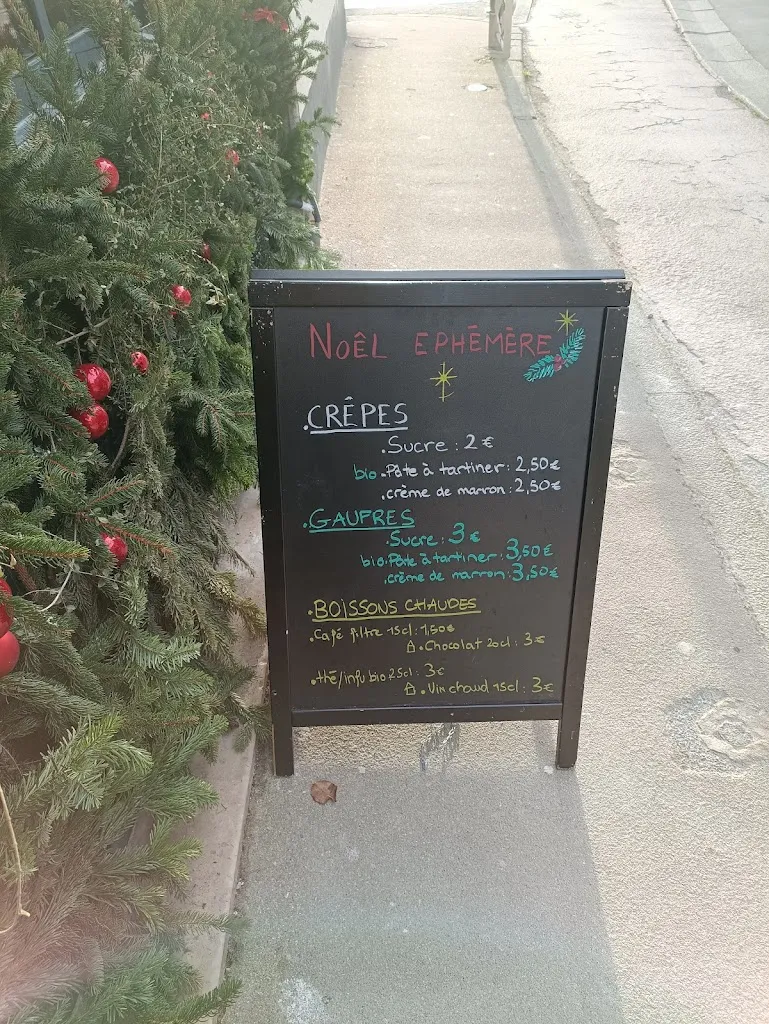 NOËL EPHÉMÈRE
.CRÊPES
.Sucre : 2 €
bio .Pâte à tartiner : 2,50 €
.crème de marron : 2,50 €
.GAUFRES
.Sucre : 3 €
bio .Pâte à tartiner : 3,50 €
.crème de marron : 3,50 €
.BOISSONS CHAUDES
.Café filtre 15cl : 1,50 €
.Chocolat 20cl : 3 €
.thé/infu bio 25cl : 3 €
.Vin chaud 15cl : 3 €